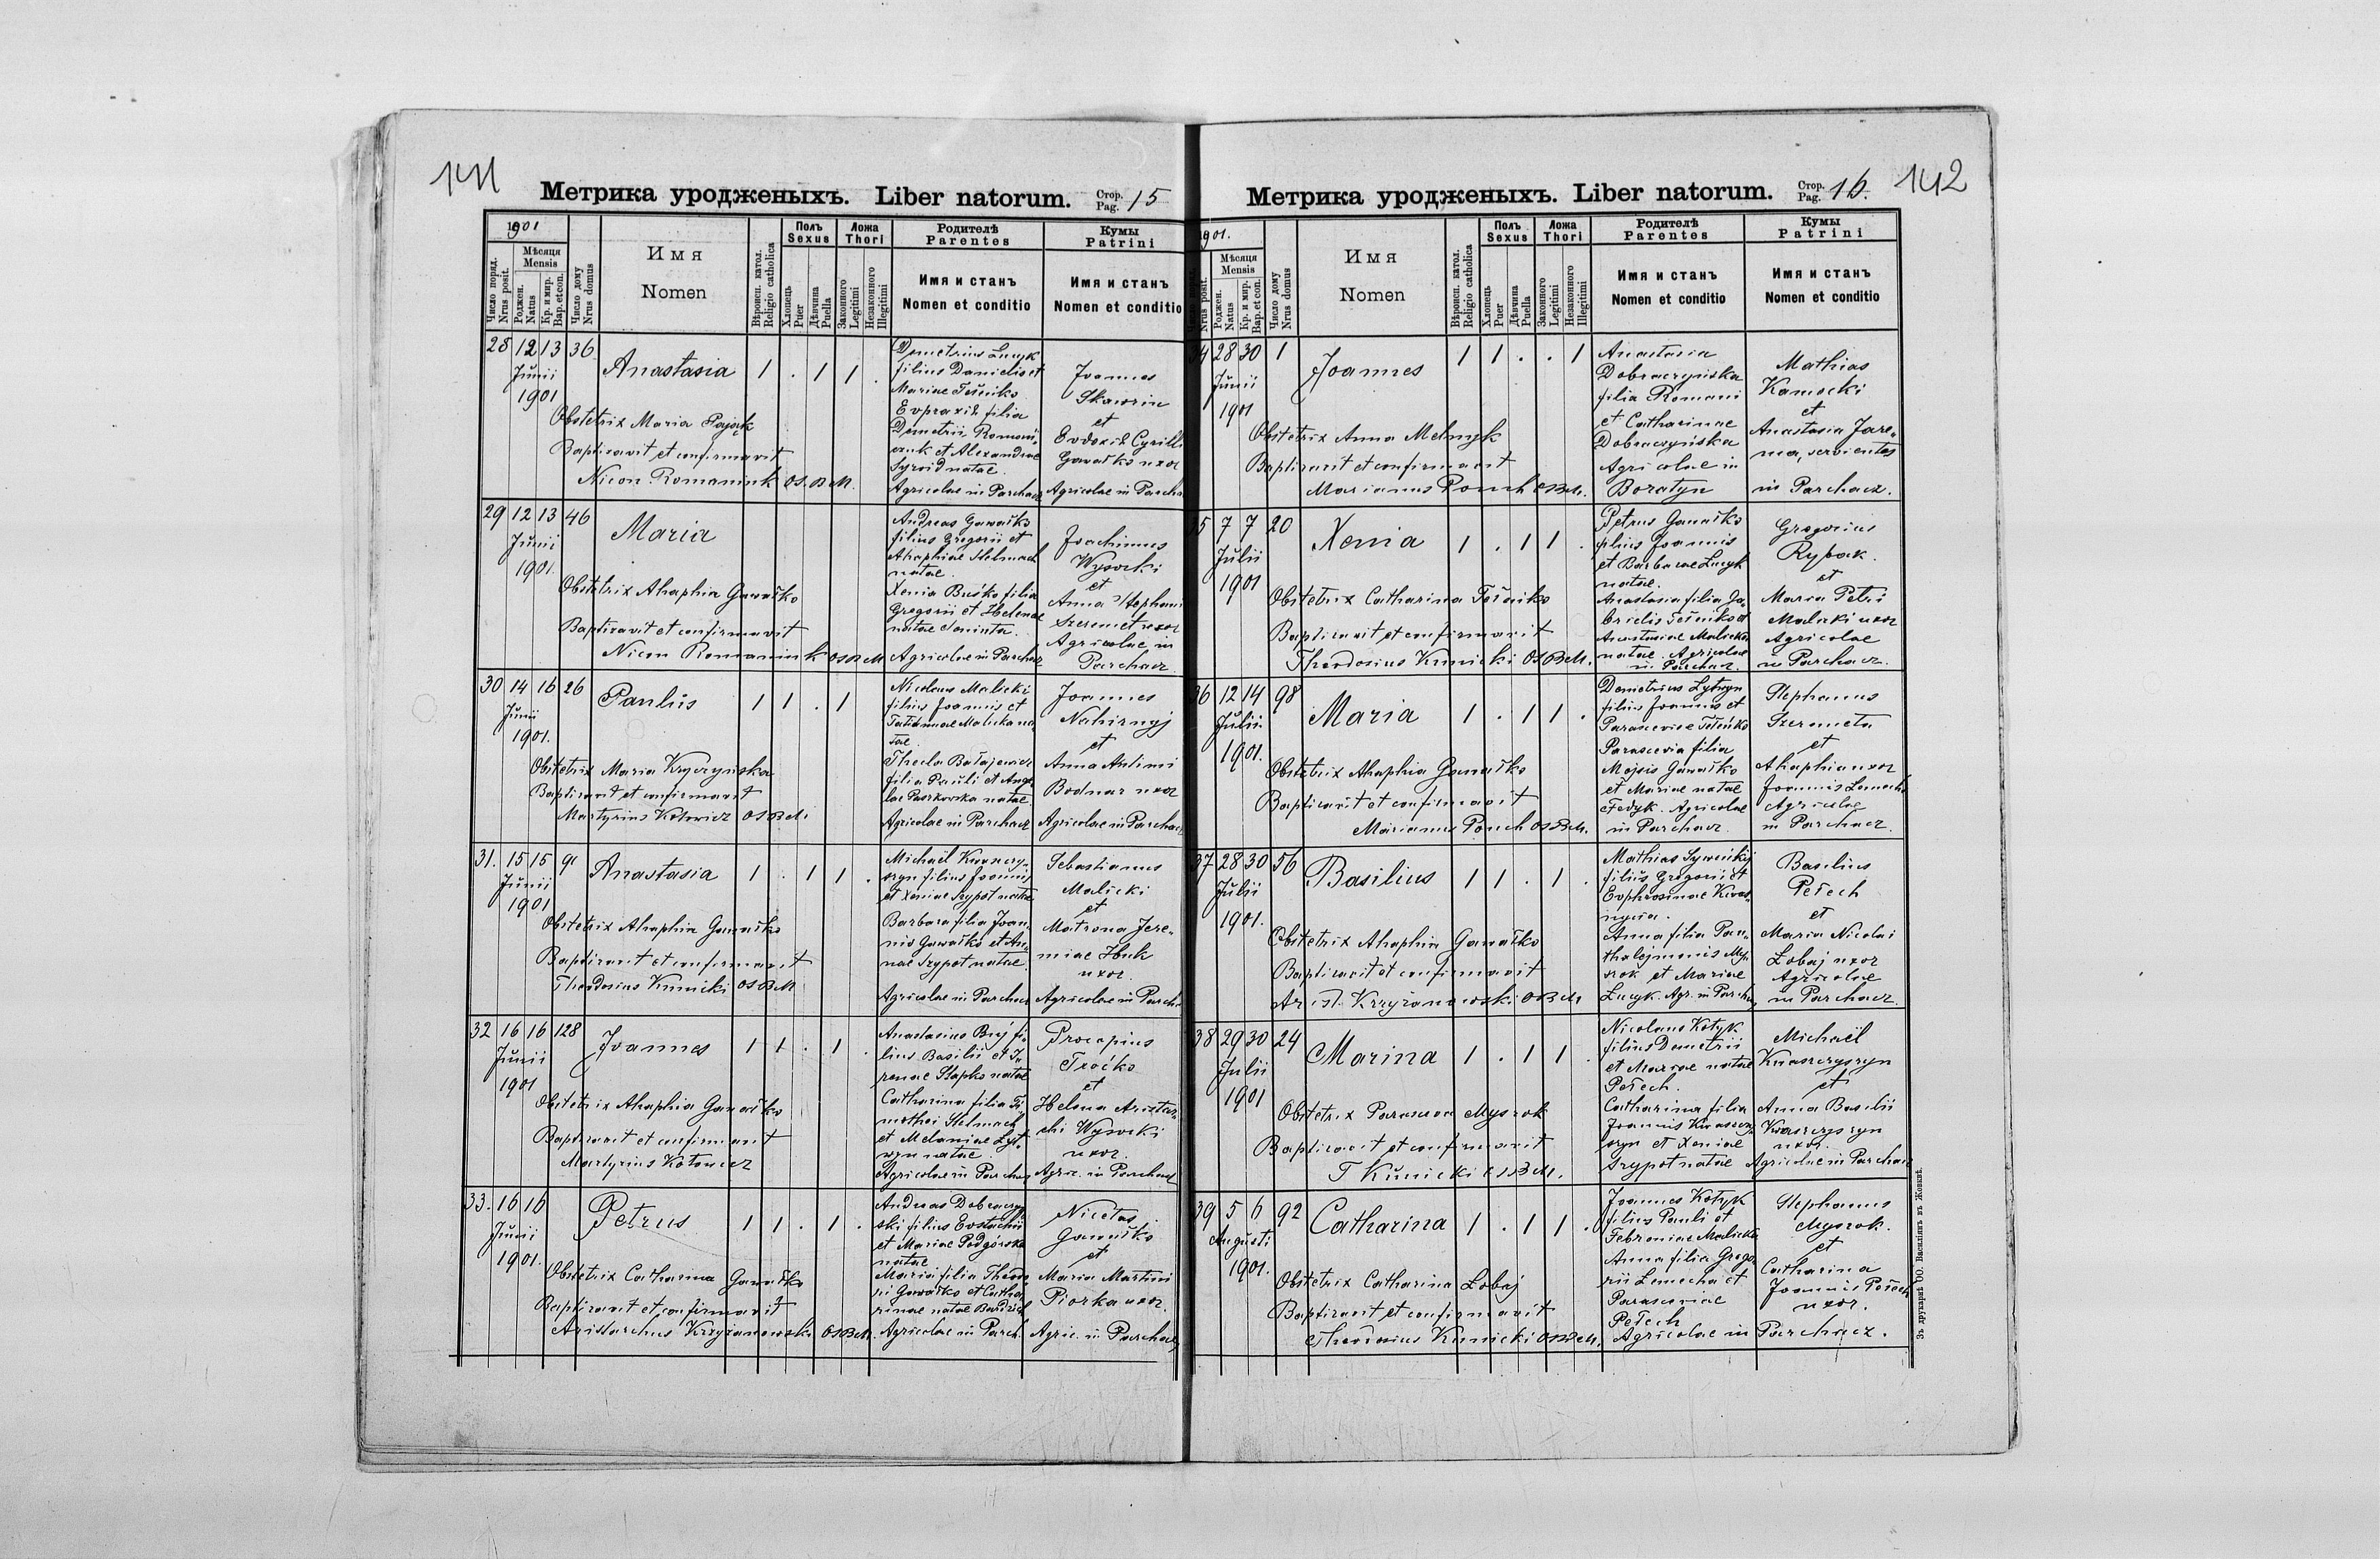 141
Метрика уродженыхъ. Liber natorum. Стор. Pag. 15
1901
Число поряд. Nrus posit.
Мѣсяця Mensis
Роджен. Natus
Кр. и мир. Bap. et con.
Число дому Nrus domus
Имя
Nomen
Вѣроисп. катол. Religio catholica
Полъ Sexus
Хлопець Puer
Дѣвчина Puella
Ложа Thori
Законного Legitimi
Незаконного Illegitimi
Родителѣ
Parentes
Имя и станъ
Nomen et conditio
Кумы
Patrini
Имя и станъ
Nomen et conditio
28 12 13 36 Anastasia 1 . 1 1 .
Junii
1901
Obstetrix Maria Pająk
Baptizavit et confirmavit
Nicon Romaniuk OS.B.M.
Demetrius Lucyk
filius Danielis et
Mariae
Eupraxia filia
Demetrii Romani-
czuk et Alexandrae
natae
Agricolae in Parchacz
Joannes
Skawrin
et
Eudoxia Cyrilli
Gawałko uxor
Agricolae in Parchacz
29 12 13 46 Maria
Junii
1901.
Obstetrix Ahaphia Gawałko
Baptizavit et confirmavit
Nicon Romaniuk OSBM
Andreas Gawałko
filius Gregorii et
Ahaphiae Stelmach
natae.
Xenia Buśko filia
Gregorii et Helenae
natae
Agricolae in Parchacz
Joachimus
Wysocki
et
Anna Stephani
Szeremet uxor
Agricolae in
Parchacz
30 14 16 26 Paulus 1 1 . 1
Junii
1901.
Obstetrix Maria Kryczyńska
Baptizavit et confirmavit
Martyrius Kotowicz OSBM.
Nicolaus Malicki
filius Joannis et
Tatiannae Malicka na-
tae
Thecla
filia Pauli et Ange-
lae Paszkowska natae
Agricolae in Parchacz
Joannes
Nahirnyj
et
Anna Antimi
Bodnar uxor
Agricolae in Parchacz
31. 15 15 91 Anastasia 1 . 1 1 .
Junii
1901
Obstetrix Ahaphia Gawałko
Baptizavit et confirmavit
Theodosius Kunicki OSBM
Michaël Kwaszczy-
szyn filius Joannis
et Xeniae Szypot natae
Barbara filia Joan-
nis Gawałko et An-
nae Szypot natae.
Agricolae in Parchacz
Sebastianus
Malicki
et
Matrona Jere-
miae Huk
uxor.
Agricolae in Parchacz
32 16 16 128 Joannes 1 1 . 1 .
Junii
1901
Obstetrix Ahaphia Gawałko
Baptizavit et confirmavit
Martyrius Kotowicz
Anastasius Buj fi-
lius Basilii et I-
renae Stapko natae
Catharina filia Ti-
mothei Stelmach
et Melaniae Lyt-
wyn natae.
Agricolae in Parchacz
Procopius
Troćko
et
Helena Aristar-
chi Wysocki
uxor.
Agric. in Parchacz
33. 16 16 Petrus 1 1 . 1 .
Junii
1901.
Obstetrix Catharina Gawałko
Baptizavit et confirmavit
Aristarchus Krzyżanowski OSBM.
Andreas Dobraczyń-
ski filius Eustachii
et Mariae Podgórska
natae.
Maria filia Theodo-
ri Gawałko et Catha-
rinae natae
Agricolae in Parch.
Nicetas
Gawałko
et
Maria Martini
Piorka uxor.
Agric. in Parchacz
142
Метрика уродженыхъ. Liber natorum. Стор. Pag. 16.
1901.
Nrus posit.
Мѣсяця Mensis
Роджен. Natus
Кр. и мир. Bap. et con.
Число дому Nrus domus
Имя
Nomen
Вѣроисп. катол. Religio catholica
Полъ Sexus
Хлопець Puer
Дѣвчина Puella
Ложа Thori
Законного Legitimi
Незаконного Illegitimi
Родителѣ
Parentes
Имя и станъ
Nomen et conditio
Кумы
Patrini
Имя и станъ
Nomen et conditio
34 28 30 1 Joannes 1 1 . . 1
Junii
1901
Obstetrix Anna Melnyk
Baptizavit et confirmavit
Marianus Powch OSBM.
Anastasia
Dobraczyńska
filia Romani
et Catharinae
Dobraczyńska
Agricolae in
Boratyn
Mathias
Kamocki
et
Anastasia Jare-
ma, servientes
in Parchacz.
35 7 7 20 Xenia 1 . 1 1 .
Julii
1901
Obstetrix Catharina
Baptizavit et confirmavit
Theodosius Kunicki OSBM.
Petrus Gawałko
filius Joannis
et Barbarae Lucyk
natae.
Anastasia filia Ga-
brielis et
Anastasiae Malicka
natae. Agricolae
in Parchacz.
Gregorius
Rybak.
et
Maria Petri
Malicki uxor
Agricolae
in Parchacz.
36 12 14 98 Maria 1 . 1 1 .
Julii
1901.
Obstetrix Ahaphia Gawałko
Baptizavit et confirmavit
Marianus Powch OSBM.
Demetrius Lytwyn
filius Joannis et
Parasceviae
Parascevia filia
Mojsis Gawałko
et Mariae natae
Fedyk. Agricolae
in Parchacz.
Stephanus
Szeremeta
et
Ahaphia uxor
Joannis Lemecha
Agricolae
in Parchacz.
37 28 30 56 Basilius 1 1 . 1 .
Julii
1901.
Obstetrix Ahaphia Gawałko
Baptizavit et confirmavit
Arist. Krzyżanowski OSBM
Mathias
filius Gregorii et
Euphrosinae
Anna filia Pan-
thalejmonis My-
szok et Mariae
Lucyk. Agr. in Parchacz
Basilius
Pełech
et
Maria Nicolai
Łobaj uxor
Agricolae
in Parchacz.
38 29 30 24 Marina 1 . 1 1 .
Julii
1901
Obstetrix Myszok
Baptizavit et confirmavit
T Kunicki OSBM.
Nicolaus Kotyk
filius Demetrii
et Mariae natae
Pełech.
Catharina filia
Joannis Kwaszczy-
szyn et Xeniae
Szypot natae
Michaël
Kwaszczyszyn
et
Anna Basilii
Kwaszczyszyn
uxor.
Agricolae in Parchacz
39 5 6 92 Catharina 1 . 1 1 .
Augusti
1901.
Obstetrix Catharina Łobaj
Baptizavit et confirmavit
Theodosius Kunicki OSBM.
Joannes Kotyk
filius Pauli et
Febroniae Malicka
Anna filia Grego-
rii Lemecha et
Parasceviae
Pełech
Agricolae in Parchacz.
Stephanus
Myszok.
et
Catharina
Joannis Pełech
uxor.
Зъ друкарнѣ ОО. Василіянъ въ Жовквѣ.